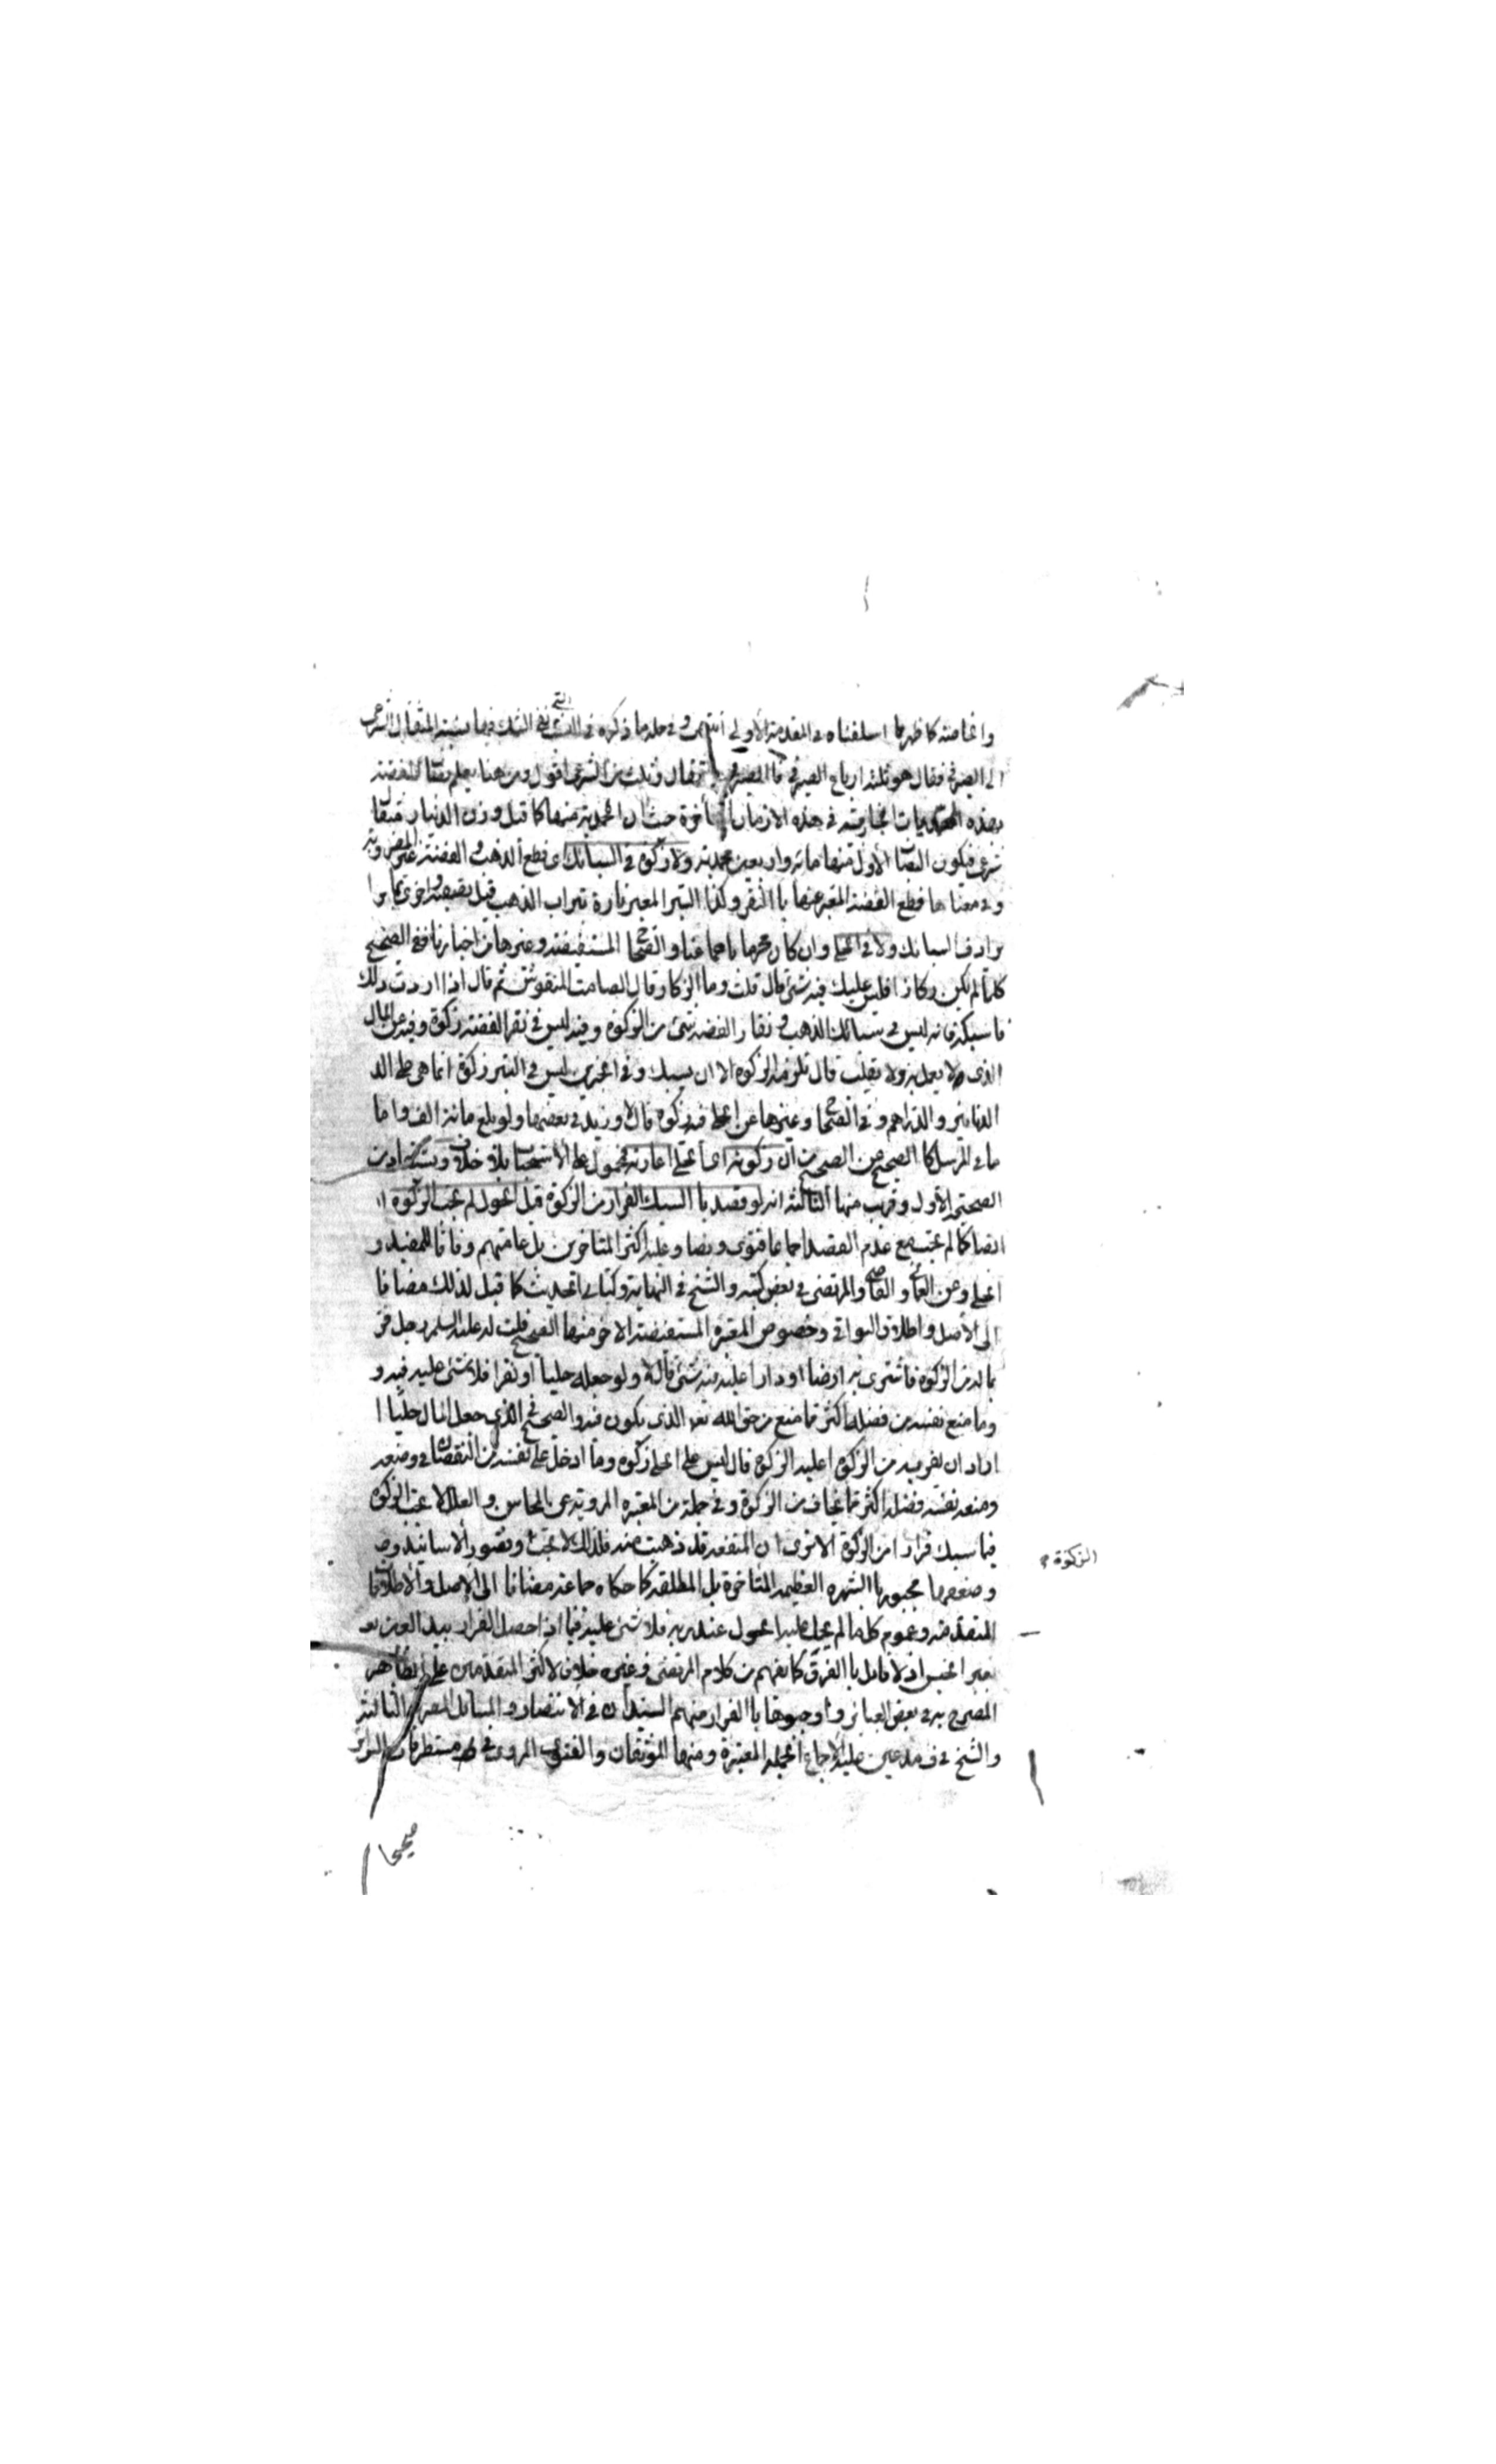 وانما منه كما ظهر مما اسلفناه في المقدمة الأولى انتهى وفي جملة ما ذكره في نفى الشك فيما نسبة المثقال الشرعي
الى الصيرفي فقال هو ثلثة ارباع الصيرفي فالصيرفي مثقال وثلث من الشرعى اقول ومن هنا يعلم نصاب الفضة
بهذه المحمديات الجارية في هذه الازمان المتأخرة حيث ان المحمدية منها كما قيل وزن الدينار مثقالا
شرعى فيكون النصاب الأول منها مائة واربعين محمدية ولا زكوة في السبائك اى قطع الذهب والفضة غير المضروبة
وفي معناها قطع الفضة المعبر عنها باالنقر وكذا التبر المعبر تارة بتراب الذهب قبل تصفيته واخرى بما
يرادف السبائك ولا في الحلى وان كان محرما باجماعنا والصحاح المستفيضة وغيرها من اخبارنا ففى الصحيح
كلما لم يكن ركازا فليس عليك فيه شئ قال قلت وما الركاز قال الصامت المنقوش ثم قال اذا اردت ذلك
فاسبكه فانه ليس في سبائك الذهب ونقار الفضة شئ من الزكوة وفيه ليس في نقر الفضة زكوة وفيه عن المال
الذى لا يعمل به ولا يقلب قال تلزمه الزكوة الا ان يسبك وفي الخبرين ليس في التبر زكوة انما هى على الد
الدنانير والدراهم وفي الصحاح وغيرها عن الحلى فيه زكوة قال لا وزيد في بعضها ولو بلغ مائة الف واما
ما في المرسل كالصحيح من الصحيح ان زكوته اى الحلى اعارته فمحمول على الأستحباب بلا خلاف ويستفاد من
الصحيح الأول وقريب منها الثالثة انه لو قصد باالسبك الفرار من الزكوة قبل الحول لم تجب الزكوة
ايضا كما لم تجب مع عدم القصد اجماعا فتوى ونصا وعليه اكثر المتاخرين بل عامتهم وفاقا للمفيد و
الحلى وعن العماني والقاضى والمرتضى في بعض كتبه والشيخ في النهاية وكتابى الحديث كما قيل لذلك مضافا
الى الأصل واطلاق البواقى وخصوص المعتبرة المستفيضة الاخر منها الصحيح قلت له عليه السلم رجل فر
بماله من الزكوة فاشترى به ارضا او دارا عليه فيه شئ قال لا ولو جعله حليا او نقرا فلا شئ عليه فيه و
وما منع نفسه من فضله اكثر مما منع من حق الله تعه الذى يكون فيه والصحيح في الذى جعل المال حليا
اراد ان يفر به من الزكوة اعليه الزكوة قال ليس على الحلى زكوة وما ادخل على نفسه من النقصان في وضعه
ومنعه نفسه فضله اكثر مما يخاف من الزكوة وفي جملة من المعتبره المروية عن المحاسن والعلل لا تجب الزكوة
فيما سبك فرارا من الزكوة الا ترى ان المنفعة قد ذهبت منه فلذلك لا تجب الزكوة وقصور الأسانيد و
وضعفها مجبور باالشهرة العظيمة المتأخرة بل المطلقة كما حكاه جماعة مضافا الى الأصل والأطلاقات
المتقدمة وعموم كل ما لم يحل عليه الحول عند ربه فلا شئ عليه فيما اذا حصل الفرار بتبديل العين
بغير الجنس اذ لا قايل باالفرق كما يفهم من كلام المرتضى وغيره خلاف لاكثر المتقدمين على الظاهر
المصرح به في بعض العبائر واوجبوها باالفرار منهم السيدان في الانتصار والمسائل المصرية الثالثة
والشيخ في ف مدعين عليه الاجماع لجملة المعتبرة ومنها الموثقان والفتوى المروى في مستطرفات السرائر